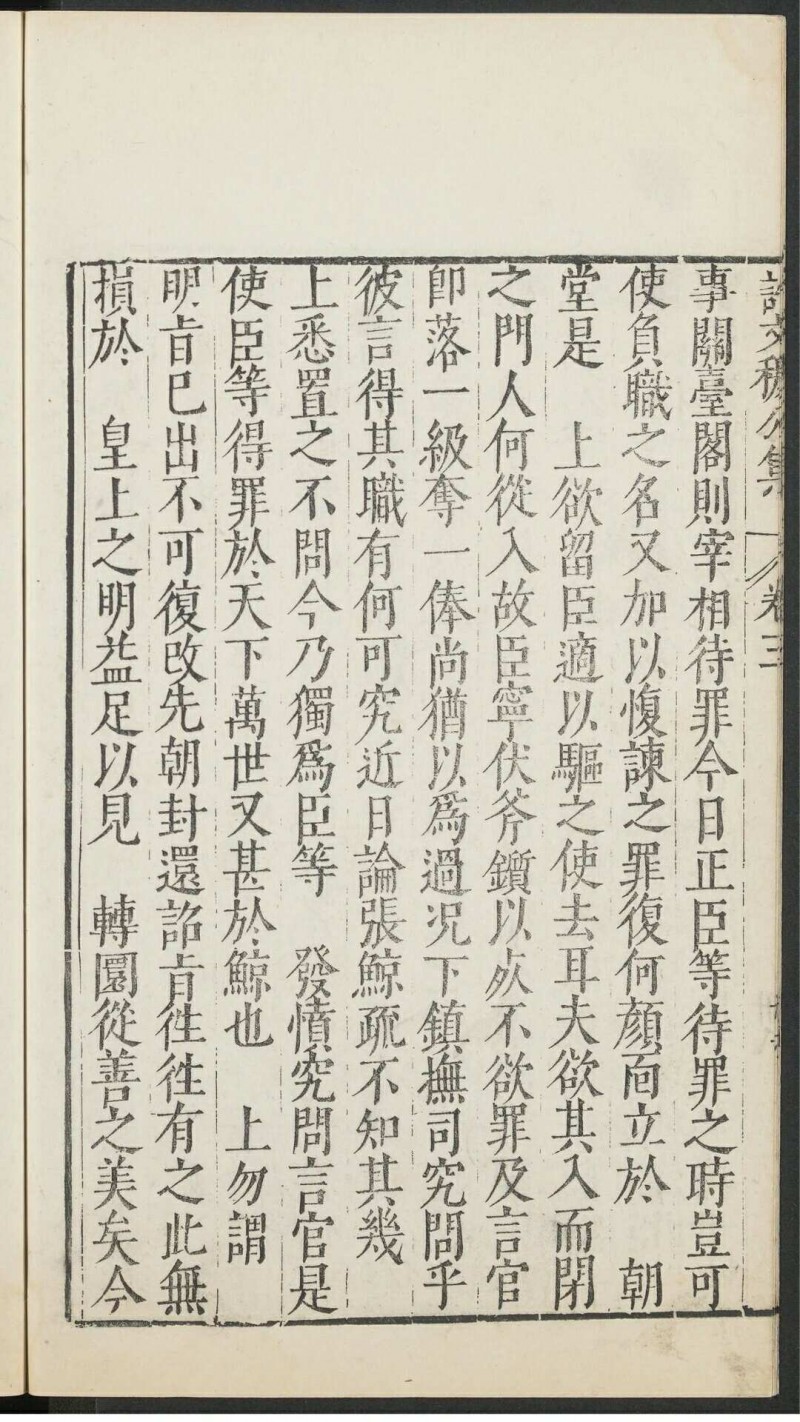 許文穆公集 卷三
事關臺閣則宰相待罪今日正臣等待罪之時豈可
使負職之名又加以愎諫之罪復何顏靣立於 朝
堂是 上欲留臣適以驅之使去耳夫欲其入而閉
之門人何從入故臣寧伏斧鑕以死不欲罪及言官
卽落一級奪一俸尚猶以爲過况下鎮撫司究問乎
彼言得其職有何可究近日論張鯨疏不知其幾
上悉置之不問今乃獨爲臣等 發憤究問言官是
使臣等得罪於天下萬世又甚於鯨也 上勿謂
明旨已出不可復改先朝封還詔旨徃徃有之此無
損於 皇上之明益足以見 轉圜從善之美矣今